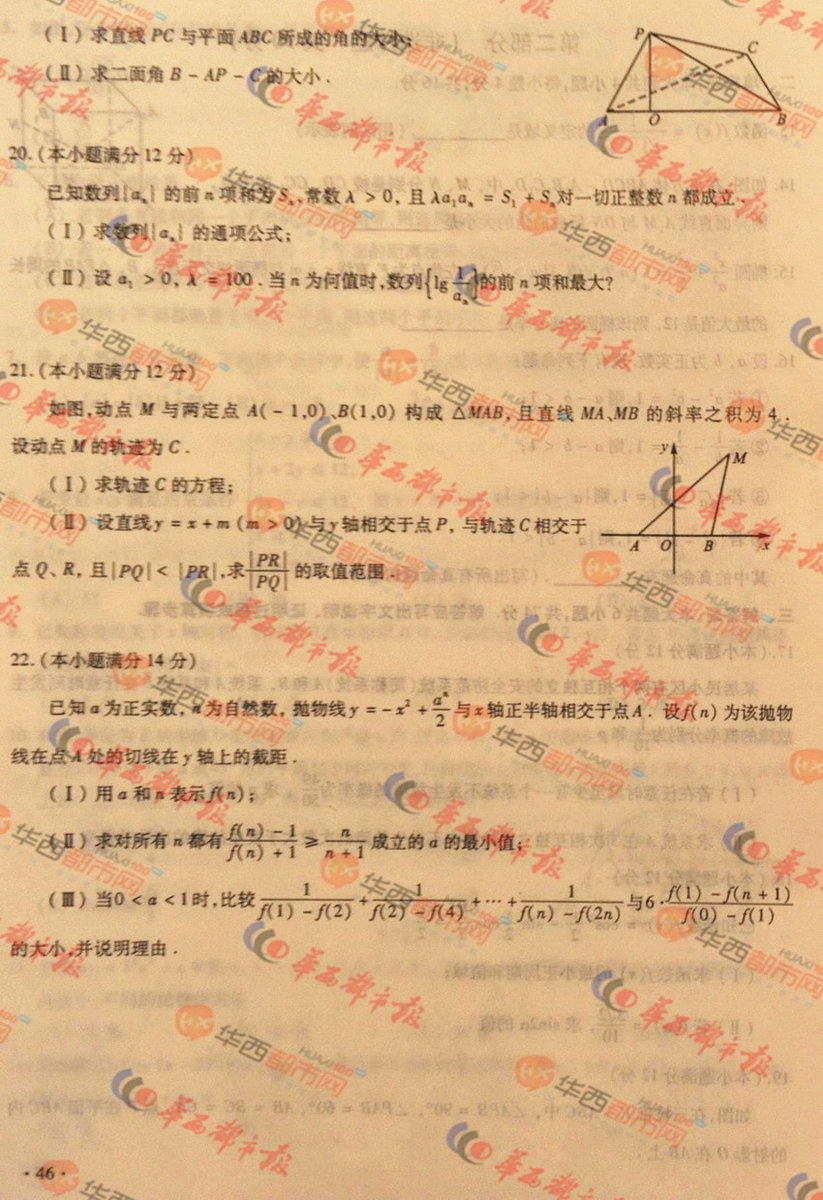 (Ⅰ)求直线PC与平面ABC所成的角的大小;
(Ⅱ)求二面角B-AP-C的大小.
P
C
A
O
B
20.(本小题满分12分)
已知数列{aₙ}的前n项和为Sₙ,常数λ>0,且λa₁aₙ=S₁+Sₙ对一切正整数n都成立.
(Ⅰ)求数列{aₙ}的通项公式;
(Ⅱ)设a₁>0,λ=100.当n为何值时,数列{lg 1/aₙ}的前n项和最大?
21.(本小题满分12分)
如图,动点M与两定点A(-1,0)、B(1,0)构成△MAB,且直线MA、MB的斜率之积为4.
设动点M的轨迹为C.
(Ⅰ)求轨迹C的方程;
(Ⅱ)设直线y=x+m(m>0)与y轴相交于点P,与轨迹C相交于
点Q、R,且|PQ|<|PR|,求|PR|/|PQ|的取值范围.
y
M
A
O
B
x
22.(本小题满分14分)
已知a为正实数,n为自然数,抛物线y=-x²+aⁿ/2与x轴正半轴相交于点A.设f(n)为该抛物
线在点A处的切线在y轴上的截距.
(Ⅰ)用a和n表示f(n);
(Ⅱ)求对所有n都有(f(n)-1)/(f(n)+1)≥n/(n+1)成立的a的最小值;
(Ⅲ)当0<a<1时,比较1/(f(1)-f(2))+1/(f(2)-f(4))+…+1/(f(n)-f(2n))与6·(f(1)-f(n+1))/(f(0)-f(1))
的大小,并说明理由.
·46·
华西都市报
华西都市网
HUAXI100